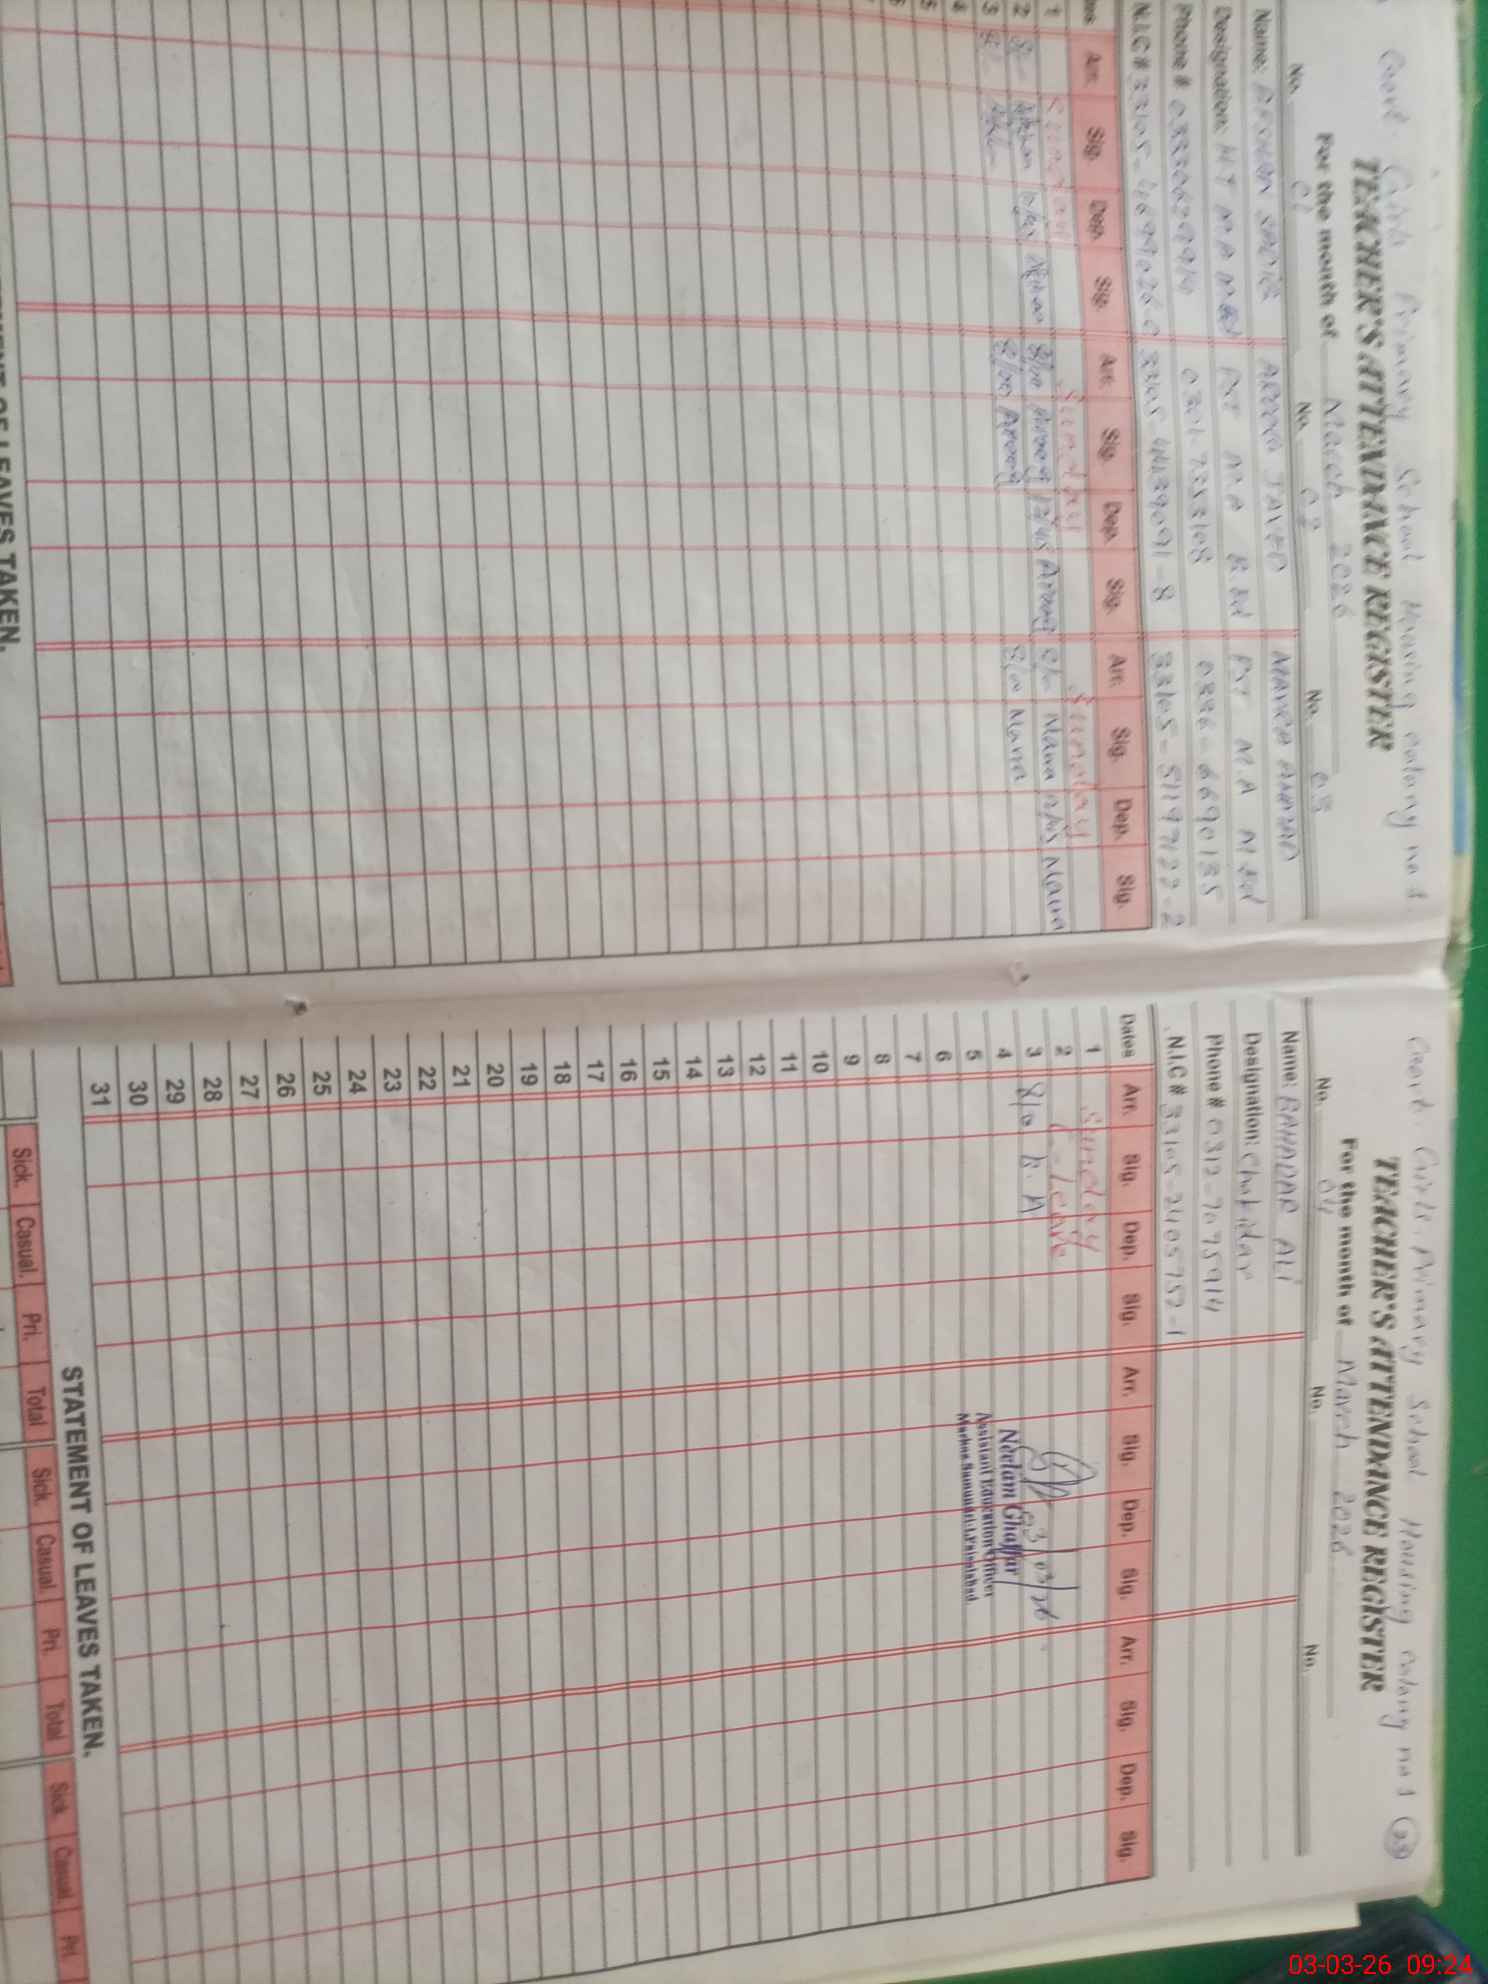 Govt. Girls Primary School Housing colony no 1
TEACHER'S ATTENDANCE REGISTER
For the month of March 2026
No. 01 No. 02 No. 03
Name: AFSHAN SADIQ AROOG JAVED MAVRA AHMAD
Designation: HT M.A M.Ed PST M.A B.Ed PST M.A M.Ed
Phone # 03306299914 0301-7353108 0336-6690135
N.I.C # 33105- 33105-4439091-8 33105-51197122-2
Arr. Sig. Dep. Sig. Arr. Sig. Dep. Sig. Arr. Sig. Dep. Sig.
1 Sunday Sunday Sunday
2 8/00 Aroog 12/45 Aroog Mavra Mavra
3 8/00 Aroog 8/00 Mavra
4
5
STATEMENT OF LEAVES TAKEN.
Govt. Girls Primary School Housing colony no 1
TEACHER'S ATTENDANCE REGISTER
For the month of March 2026
No. 04 No. No.
Name: BAHADAR ALI
Designation: Chokidar
Phone # 0312-7075914
N.I.C # 33105-2405752-1
Dates Arr. Sig. Dep. Sig. Arr. Sig. Dep. Sig. Arr. Sig. Dep. Sig.
1 Sunday
2 C-Leave
3 8/0 B.A 03/03/26
4 Neelam Ghaffar
5 Assistant Education Officer
Markaz Samundri-I, Faisalabad.
6
7
8
9
10
11
12
13
14
15
16
17
18
19
20
21
22
23
24
25
26
27
28
29
30
31
STATEMENT OF LEAVES TAKEN.
Sick. Casual. Pri. Total Sick. Casual. Pri. Total Sick. Casual. Pri.
03-03-26 09:24